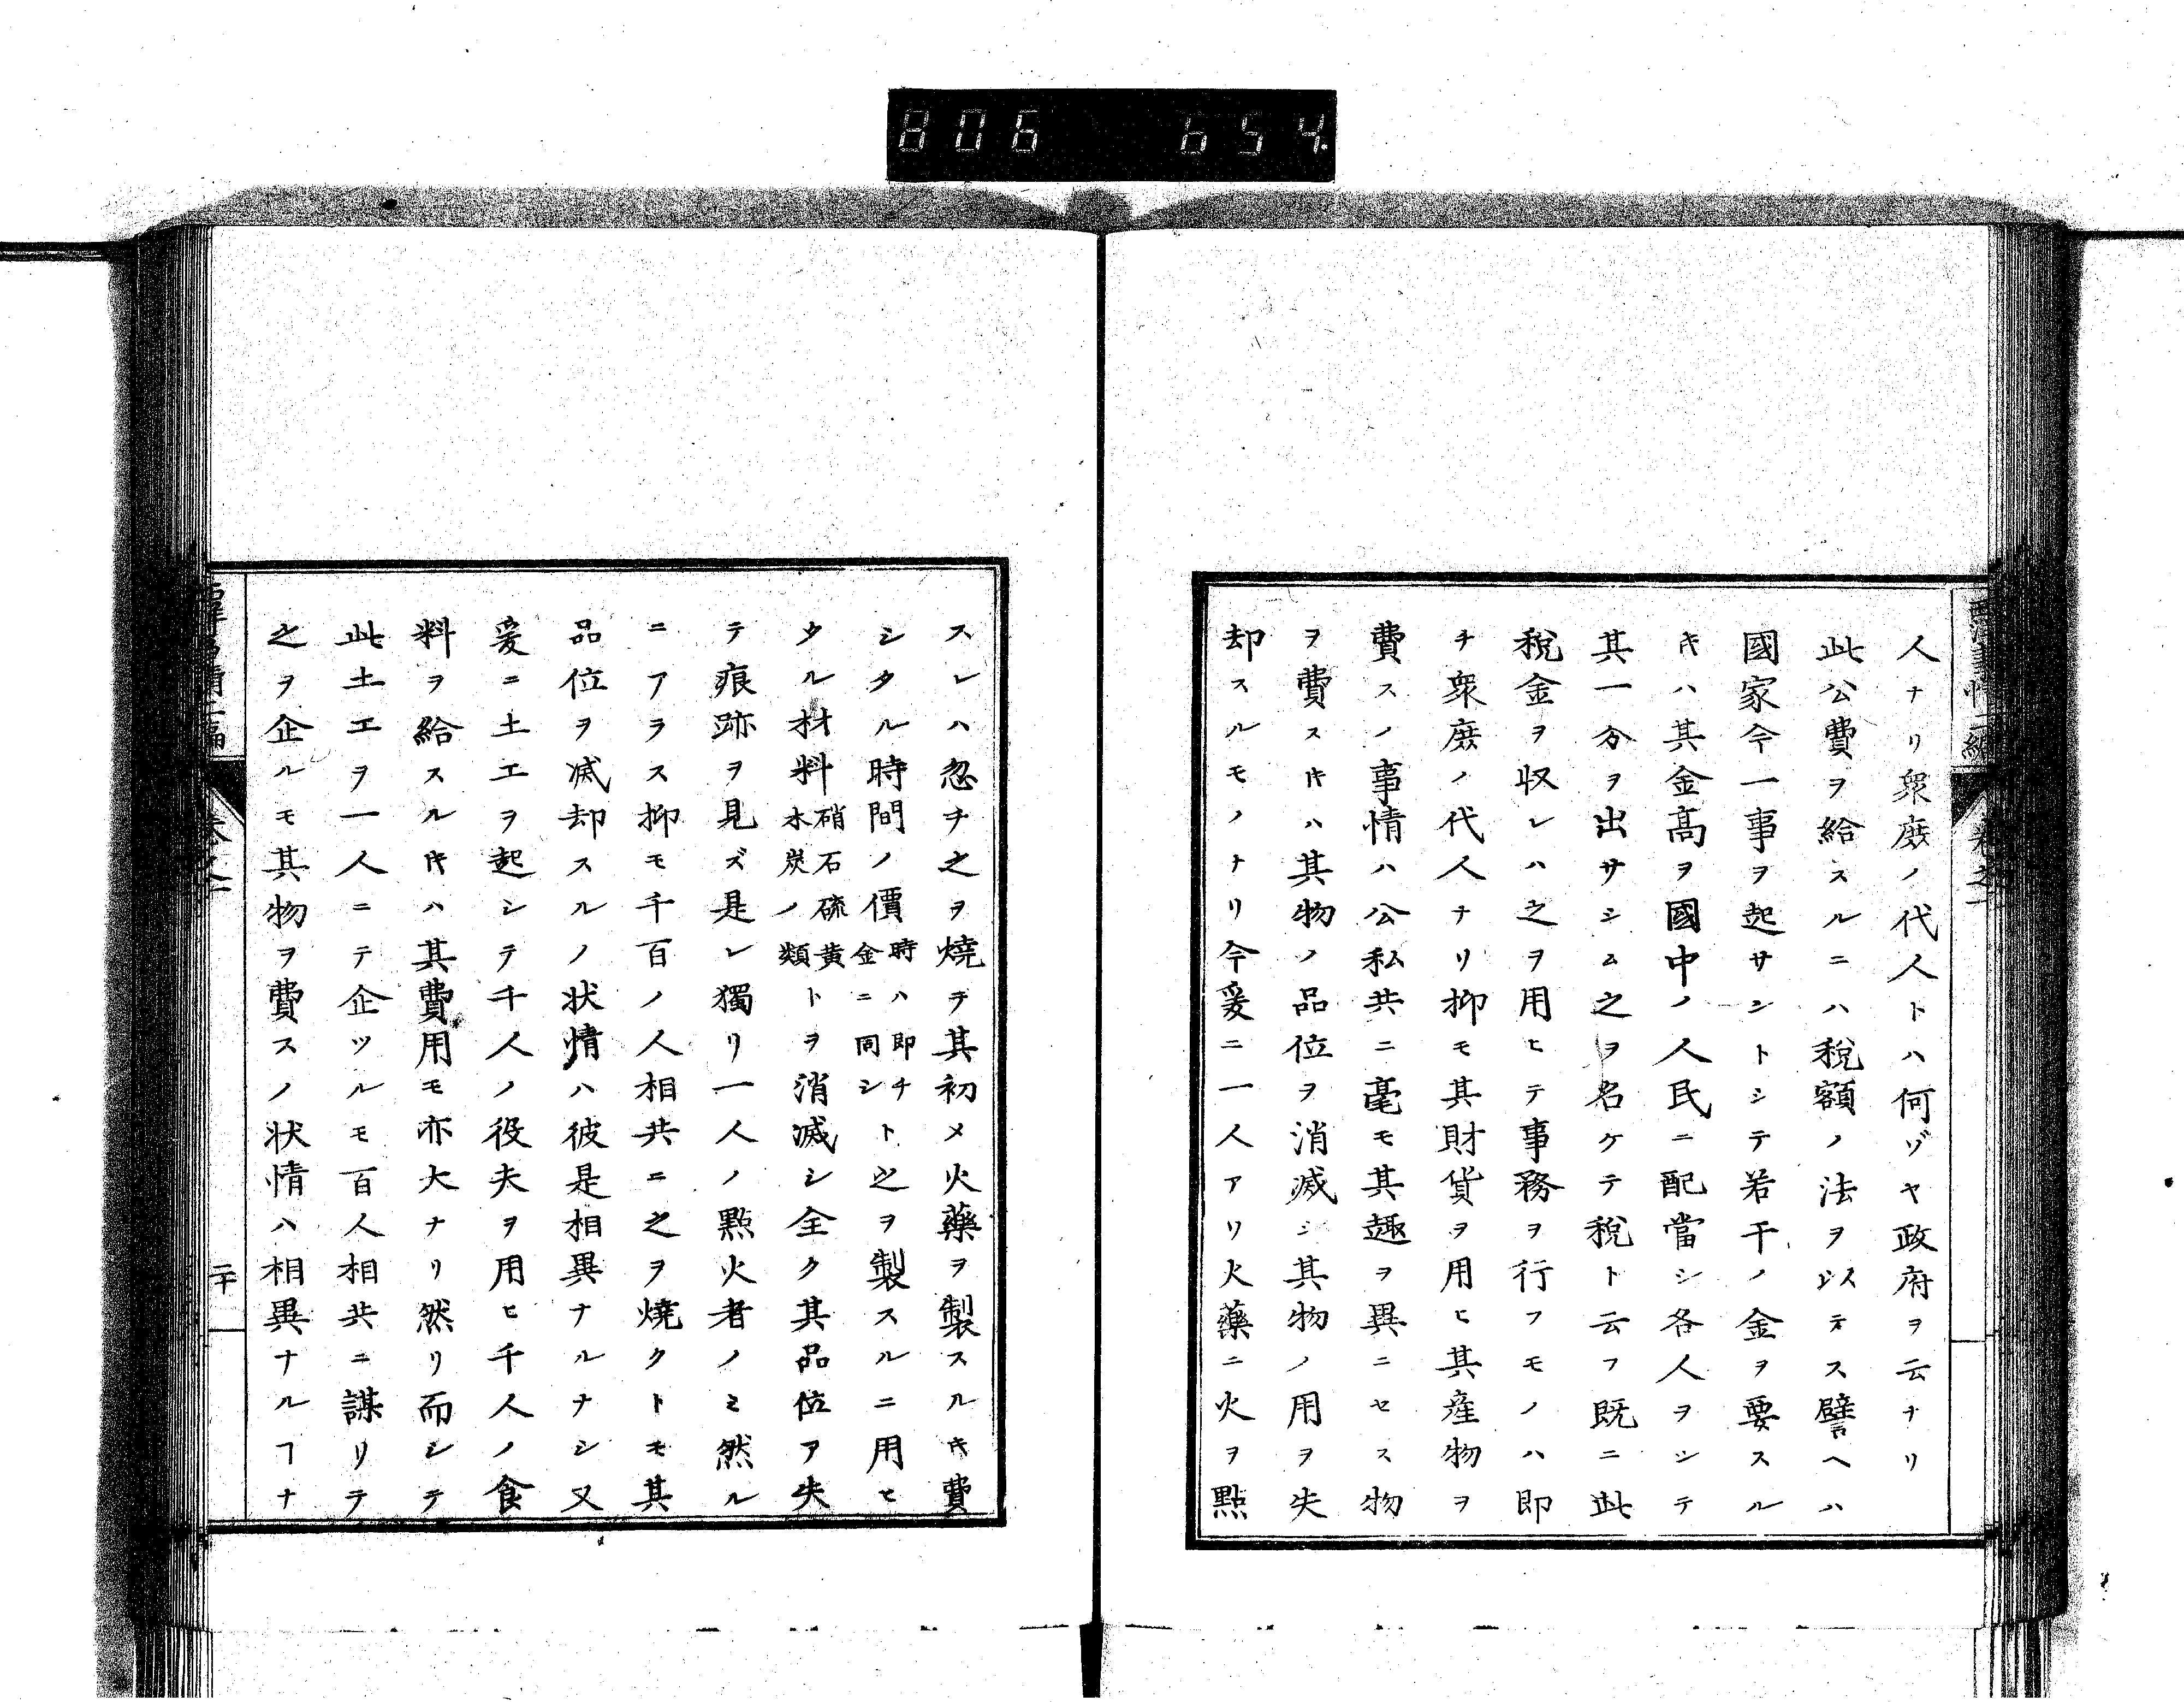 806 654
人ナリ衆庻ノ代人トハ何ゾヤ政府ヲ云ナリ
此公費ヲ給スルニハ税額ノ法ヲ以テス譬ヘハ
國家今一事ヲ起サントシテ若干ノ金ヲ要スル
キハ其金高ヲ國中ノ人民ニ配當シ各人ヲシテ
其一分ヲ出サシム之ヲ名ケテ税ト云フ既ニ此
税金ヲ収レハ之ヲ用ヒテ事務ヲ行フモノハ即
チ衆庻ノ代人ナリ抑モ其財貨ヲ用ヒ其産物ヲ
費スノ事情ハ公私共ニ毫モ其趣ヲ異ニセス物
ヲ費スキハ其物ノ品位ヲ消滅シ其物ノ用ヲ失
却スルモノナリ今爰ニ一人アリ火藥ニ火ヲ點
スレハ忽チ之ヲ燒テ其初メ火藥ヲ製スルキ費
シタル時間ノ價時ハ即チ金ニ同シト之ヲ製スルニ用ヒ
タル材料硝石硫黄木炭ノ類トヲ消滅シ全ク其品位ア失
テ痕跡ヲ見ズ是レ獨リ一人ノ點火者ノミ然ル
ニアラス抑モ千百ノ人相共ニ之ヲ燒クトモ其
品位ヲ滅却スルノ状情ハ彼是相異ナルナシ又
爰ニ土工ヲ起シテ千人ノ役夫ヲ用ヒ千人ノ食
料ヲ給スルキハ其費用モ亦大ナリ然リ而シテ
此土工ヲ一人ニテ企ツルモ百人相共ニ謀リテ
之ヲ企ルモ其物ヲ費スノ状情ハ相異ナルヿナ
二十